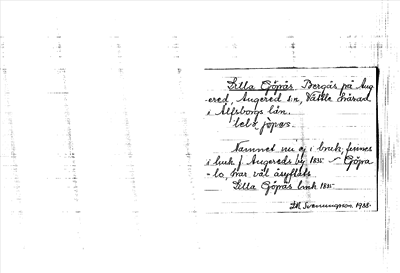 Lilla Göpås. Bergås på Aug-
ered, Angered sn, Vättle härad
i Älfsborgs län.
Namnet nu ej i bruk, finnes
i buk f Angereds by 1835 - Göpa
- lo, har väl åsyftats
Lilla Göpås buk 1835
Svenungsson 1938.